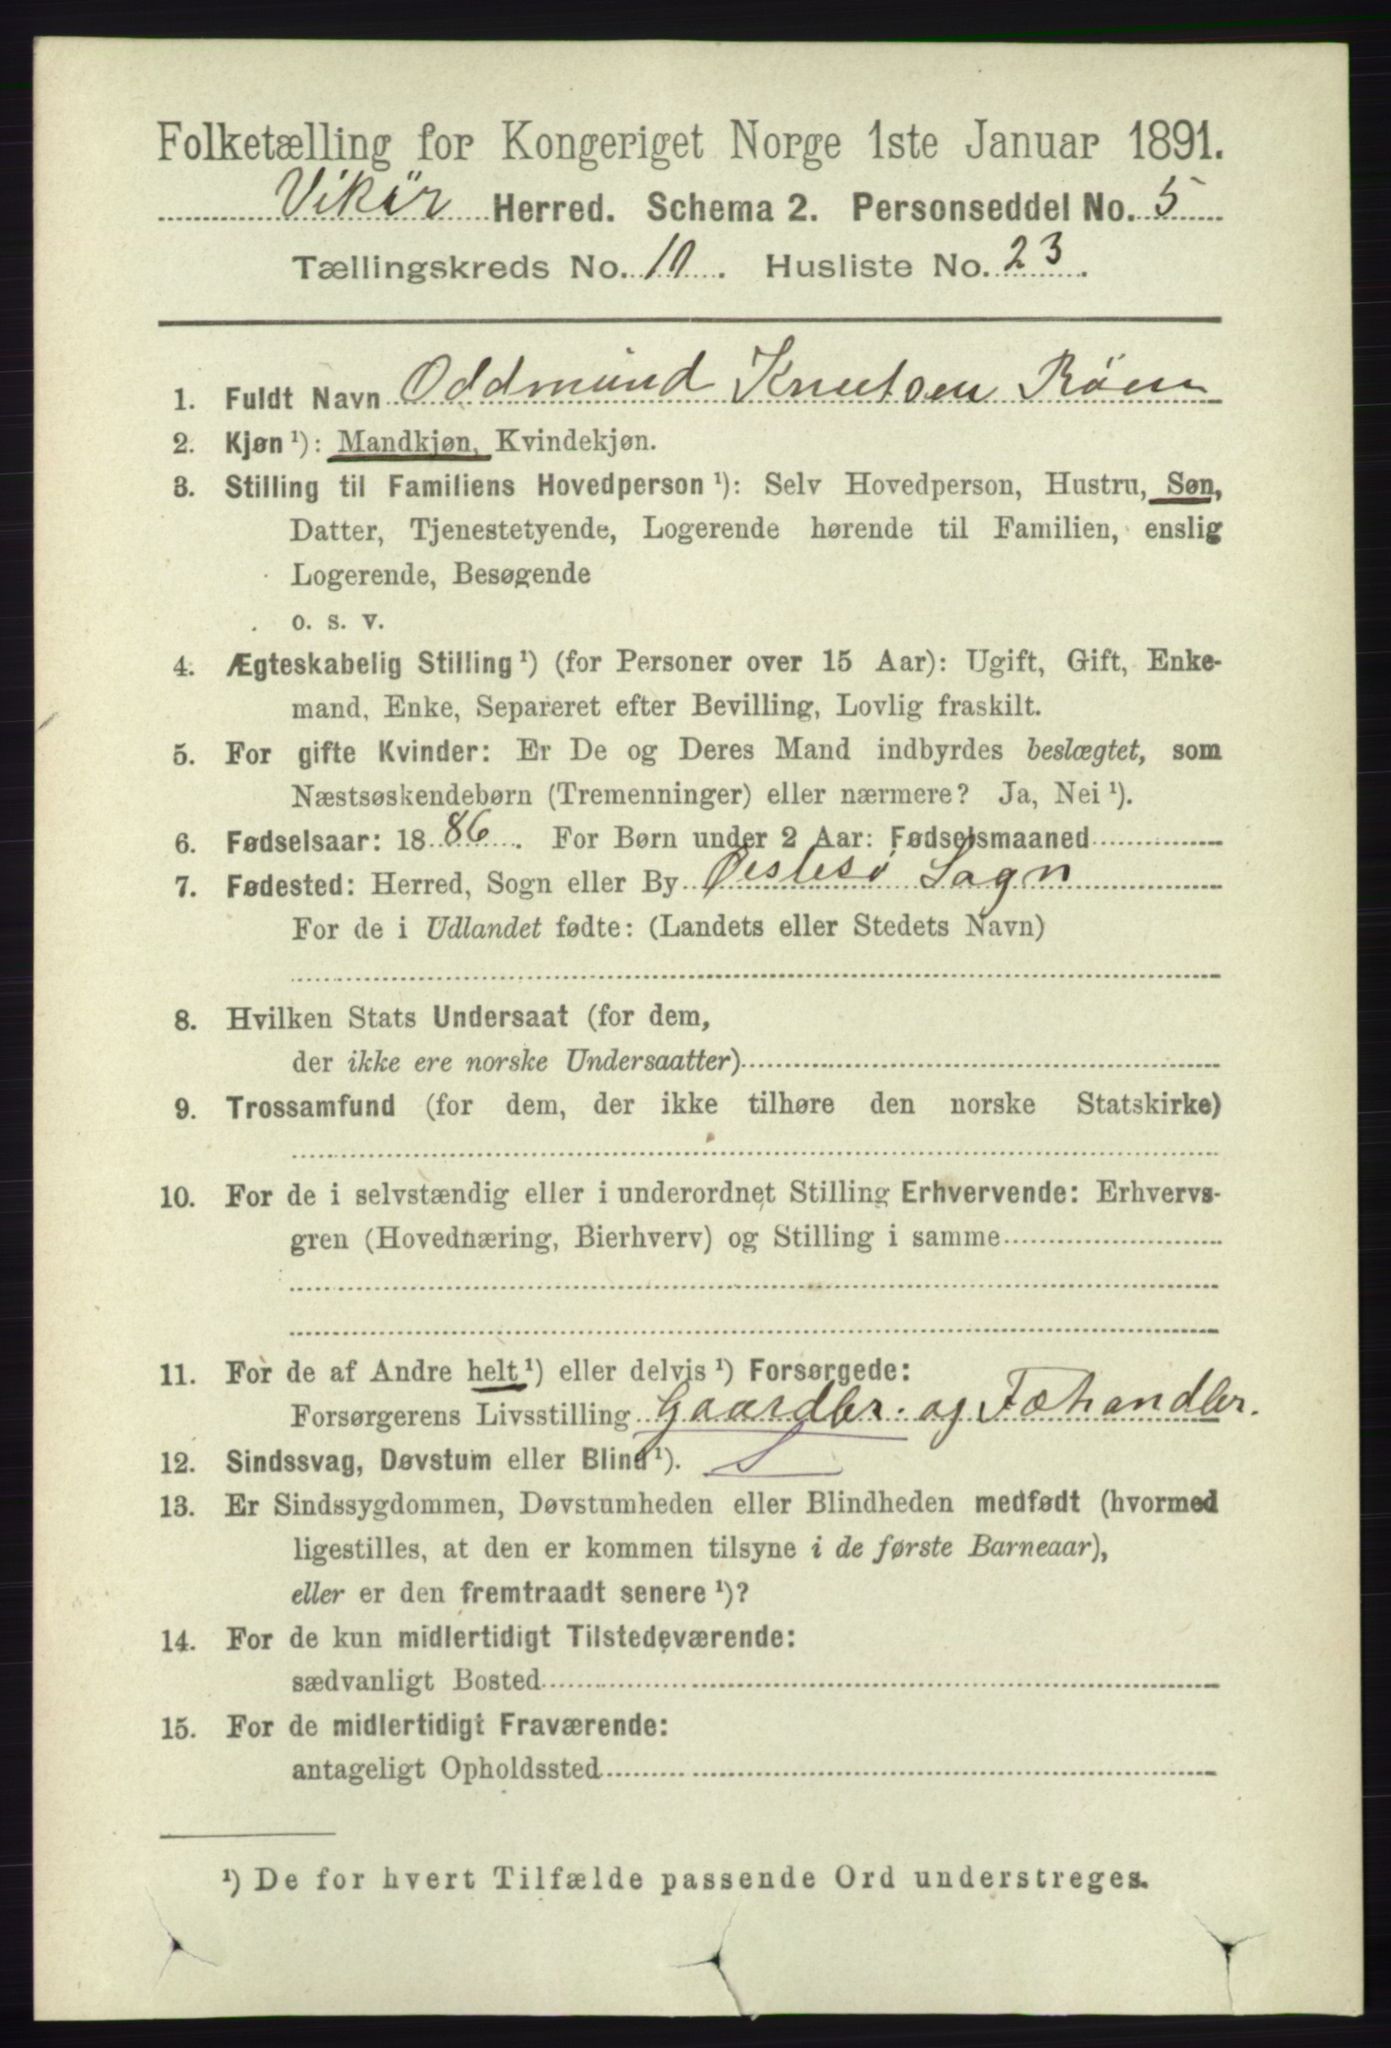 Folketælling for Kongeriget Norge 1ste Januar 1891.
Vikör Herred. Schema 2. Personseddel No. 5
Tællingskreds No. 10. Husliste No. 23.
1. Fuldt Navn Oddmund Knutsen Röen
2. Kjøn ¹): Mandkjøn, Kvindekjøn.
3. Stilling til Familiens Hovedperson ¹): Selv Hovedperson, Hustru, Søn,
Datter, Tjenestetyende, Logerende hørende til Familien, enslig
Logerende, Besøgende
o. s. v.
4. Ægteskabelig Stilling ¹) (for Personer over 15 Aar): Ugift, Gift, Enke-
mand, Enke, Separeret efter Bevilling, Lovlig fraskilt.
5. For gifte Kvinder: Er De og Deres Mand indbyrdes beslægtet, som
Næstsøskendebørn (Tremenninger) eller nærmere? Ja, Nei ¹).
6. Fødselsaar: 1886. For Børn under 2 Aar: Fødselsmaaned
7. Fødested: Herred, Sogn eller By Øistesø Sogn
For de i Udlandet fødte: (Landets eller Stedets Navn)
8. Hvilken Stats Undersaat (for dem,
der ikke ere norske Undersaatter)
9. Trossamfund (for dem, der ikke tilhøre den norske Statskirke)
10. For de i selvstændig eller i underordnet Stilling Erhvervende: Erhvervs-
gren (Hovednæring, Bierhverv) og Stilling i samme
11. For de af Andre helt ¹) eller delvis ¹) Forsørgede:
Forsørgerens Livsstilling Gaardbr. og Fæhandler.
12. Sindssvag, Døvstum eller Blind ¹).
13. Er Sindssygdommen, Døvstumheden eller Blindheden medfødt (hvormed
ligestilles, at den er kommen tilsyne i de første Barneaar),
eller er den fremtraadt senere ¹)?
14. For de kun midlertidigt Tilstedeværende:
sædvanligt Bosted
15. For de midlertidigt Fraværende:
antageligt Opholdssted
¹) De for hvert Tilfælde passende Ord understreges.